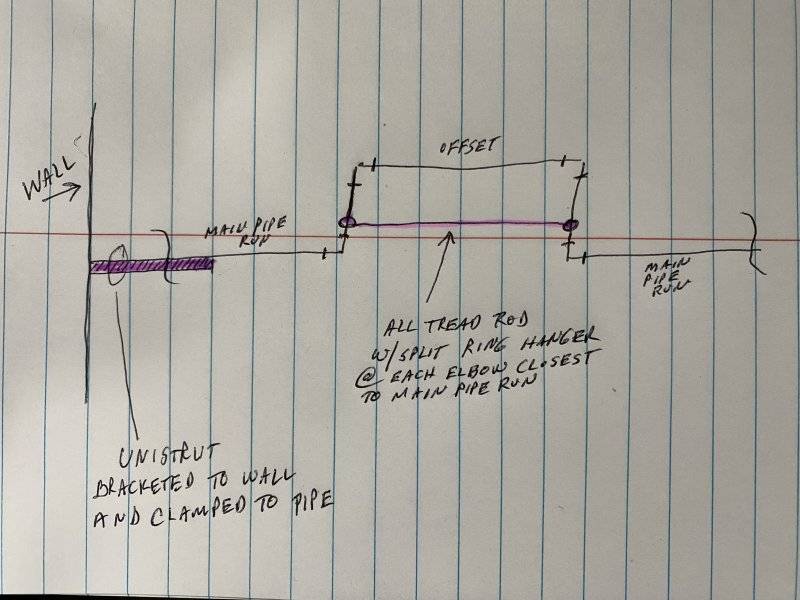 OFFSET
WALL
MAIN PIPE
RUN
MAIN
PIPE
RUN
ALL TREAD ROD
W/SPLIT RING HANGER
@ EACH ELBOW CLOSEST
TO MAIN PIPE RUN
UNISTRUT
BRACKETED TO WALL
AND CLAMPED TO PIPE